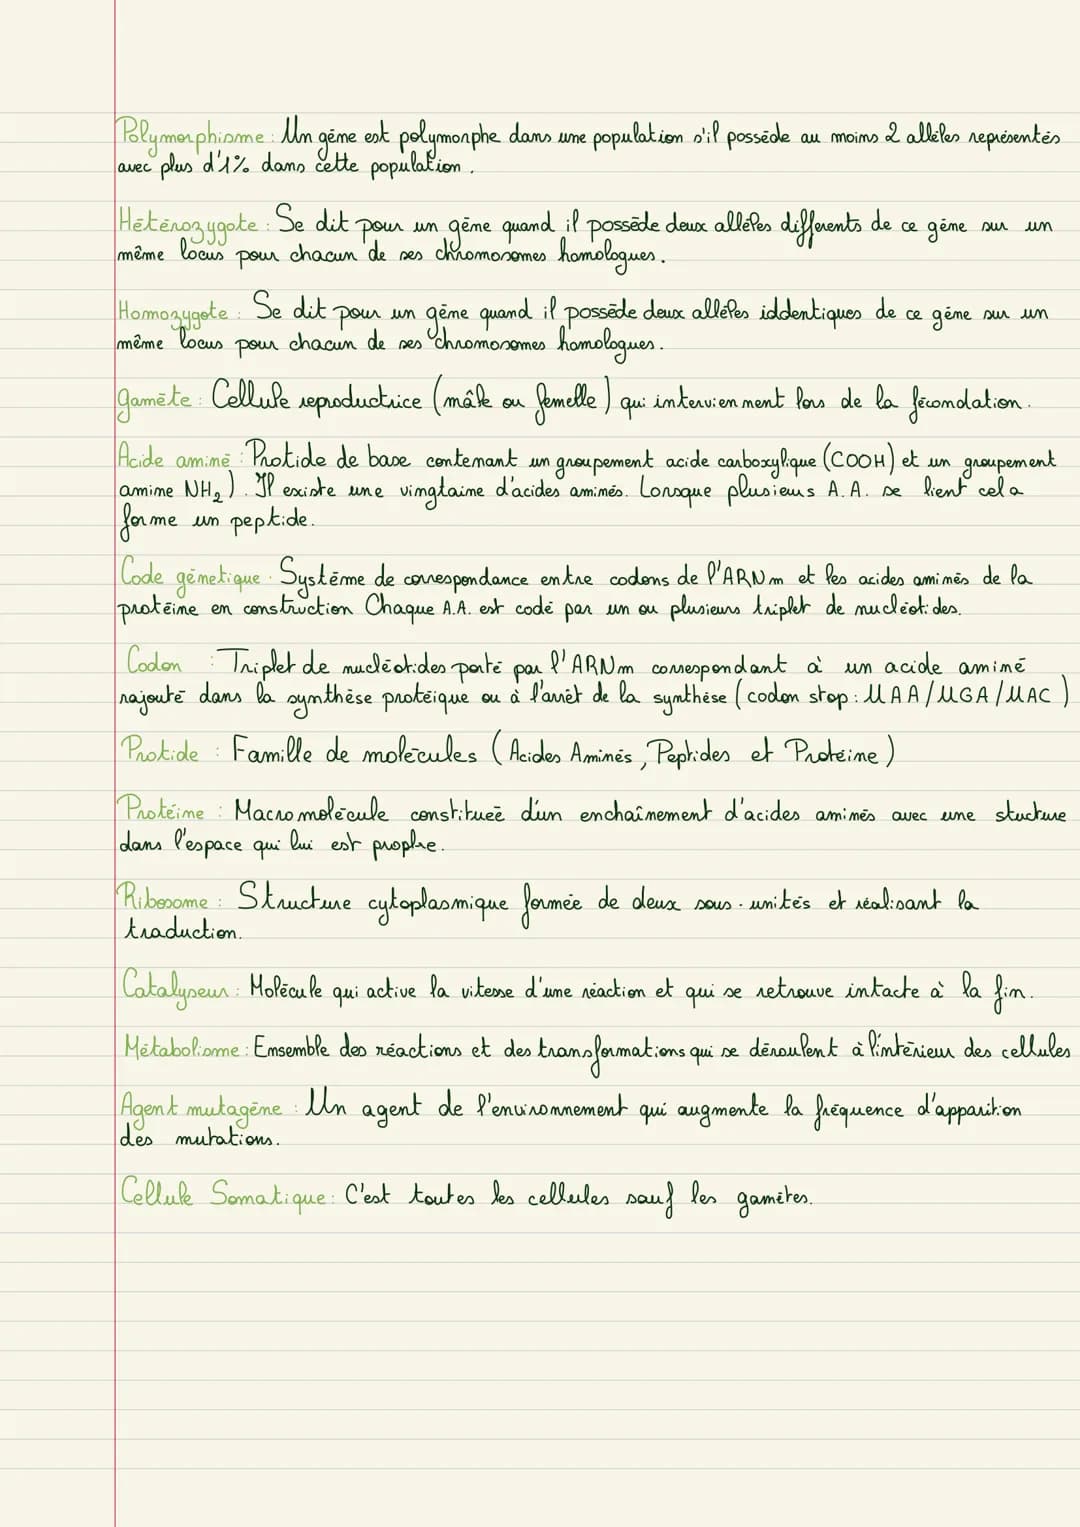 Polymorphisme : Un gène est polymorphe dans une population s'il possède au moins 2 allèles représentés
avec plus d'1% dans cette population.
Hétérozygote : Se dit pour un gène quand il possède deux allèles différents de ce gène sur un
même locus pour chacun de ses chromosomes homologues.
Homozygote : Se dit pour un gène quand il possède deux allèles iddentiques de ce gène sur un
même locus pour chacun de ses chromosomes homologues.
Gamète : Cellule reproductrice (mâle ou femelle) qui interviennent lors de la fécondation.
Acide aminé : Protide de base contenant un groupement acide carboxylique (COOH) et un groupement
amine NH₂). Il existe une vingtaine d'acides aminés. Lorsque plusieurs A.A. se lient cela
forme un peptide.
Code génetique : Système de correspondance entre codons de l'ARNm et les acides aminés de la
protéine en construction Chaque A.A. est codé par un ou plusieurs triplet de nucléotides.
Codon : Triplet de nucléotides porté par l'ARNm correspondant à un acide aminé
rajouté dans la synthèse protéique ou à l'arrêt de la synthèse (codon stop : UAA/UGA/UAC)
Protide : Famille de molécules (Acides Aminés, Peptides et Protéine)
Protéine : Macromolécule constitueé d'un enchaînement d'acides aminés avec une stucture
dans l'espace qui lui est prophe.
Ribosome : Structure cytoplasmique formée de deux sous-unités et réalisant la
traduction.
Catalyseur : Molécule qui active la vitesse d'une réaction et qui se retrouve intacte à la fin.
Métabolisme : Emsemble des réactions et des transformations qui se déroulent à l'intérieur des cellules
Agent mutagène : Un agent de l'environnement qui augmente la fréquence d'apparition
des mutations.
Cellule Somatique : C'est toutes les cellules sauf les gamètes.